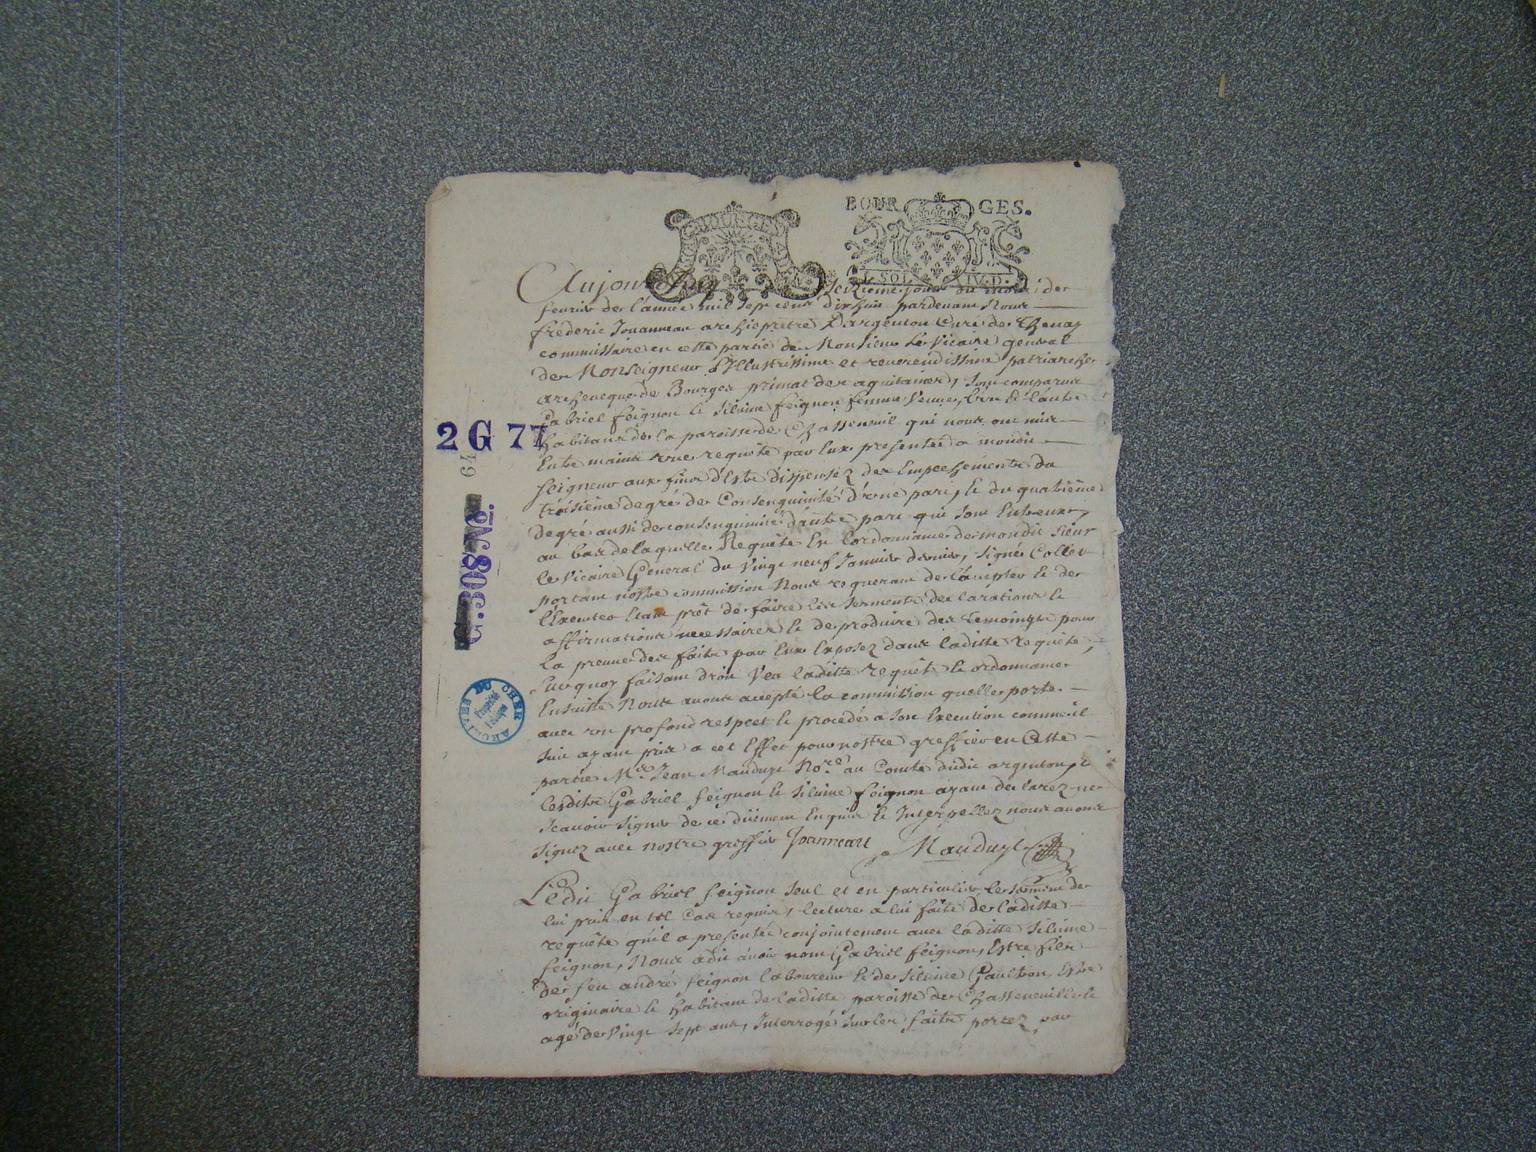 BOURGES
BOURGES.
SOL IV. D.
Aujourdhuy Seizieme jour du mois de
fevrier de l'année mil sept cens dix huit pardevant Nous
frederic Joanneau archiprêtre D'argenton Curé de Thenay
commissaire en cette partie de Monsieur Le Vicaire general
de Monseigneur L'Illustrissime et reverendissime patriarche
archevêque de Bourges primat des aquitaines, sont comparus
Gabriel feignon et Silvine feignon femme Veuve, L'un et l'autre
habitans de la paroisse de Chasseneuil qui nous ont mis
Entre mains une requête par Eux presentée a mondit
seigneur aux fins d'Estre dispensez des Empeschements du
troisième degré de Consenguinité d'une part, et du quatrième
degré aussi de consenguinité d'autre part qui sont Entreux,
au bas de laquelle Requête Est l'ordonnance de mondit sieur
le Vicaire General du Vingt neuf Janvier dernier, signé Collet
portant nostre commission Nous requerant de l'accepter et de
l'Executer Etant prêt de faire les serments declarations et
affirmations necessaires et de produire des temoings pour
la preuve des faits par Eux Exposez dans laditte requête,
surquoy faisant droit Veu laditte requête et ordonnance
Ensuitte Nous avons accepté la commission quelle porte
avec un profond respect et procedé a son Execution comme il
suit ayant pris a cet Effet pour nostre greffier en Cette
partie Me. Jean Mauduyt No.re au Comté dudit argenton, et
lesdits Gabriel feignon et Silvine feignon ayant declarez ne
scavoir signer de ce düement Enquis et Interpellez nous avons
signez avec nostre greffier Joanneau Mauduyt
Ledit Gabriel feignon seul et en particulier le serment de
lui pris en tel Cas requis, lecture a lui faite de laditte
requête qu'il a presentée conjointement avec laditte Silvine
feignon, Nous a dit avoir nom Gabriel feignon, Estre fils
de feu andré feignon laboureur et de Silvine Gaultron, Estre
originaire et habitant de laditte paroisse de Chasseneuille et
agé de Vingt sept ans, Interrogé sur les faits portez par
2 G 77
64
C. 308 No.
ARCHIVES DU CHER
Propriété
Publique